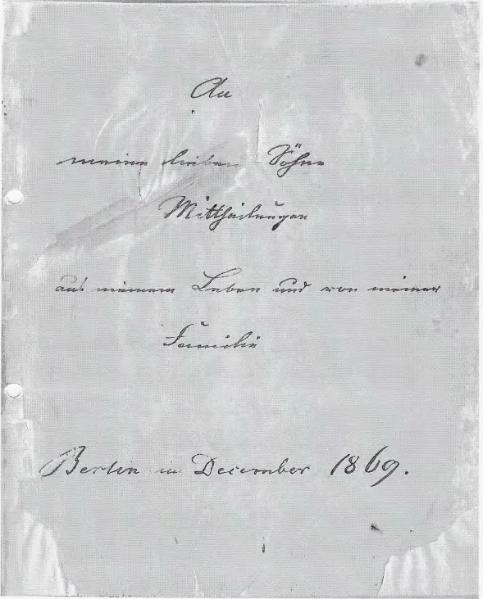 An
meine lieben Söhne
Mittheilungen
aus meinem Leben und von meiner
Familie
Berlin im December 1869.